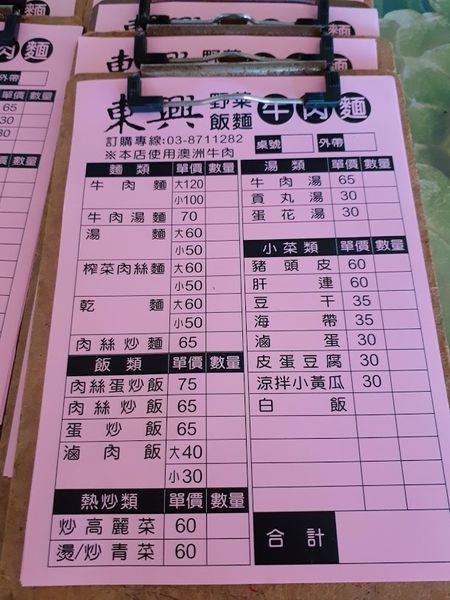 東興 野菜飯麵 牛肉麵
訂購專線:03-8711282
桌號 外帶
※本店使用澳洲牛肉
麵類 單價 數量
牛肉麵 大120
小100
牛肉湯麵 70
湯麵 大60
小50
榨菜肉絲麵 大60
小50
乾麵 大60
小50
肉絲炒麵 65
飯類 單價 數量
肉絲蛋炒飯 75
肉絲炒飯 65
蛋炒飯 65
滷肉飯 大40
小30
熱炒類 單價 數量
炒高麗菜 60
燙/炒青菜 60
湯類 單價 數量
牛肉湯 65
貢丸湯 30
蛋花湯 30
小菜類 單價 數量
豬頭皮 60
肝連 60
豆干 35
海帶 35
滷蛋 30
皮蛋豆腐 30
涼拌小黃瓜 30
白飯
合計